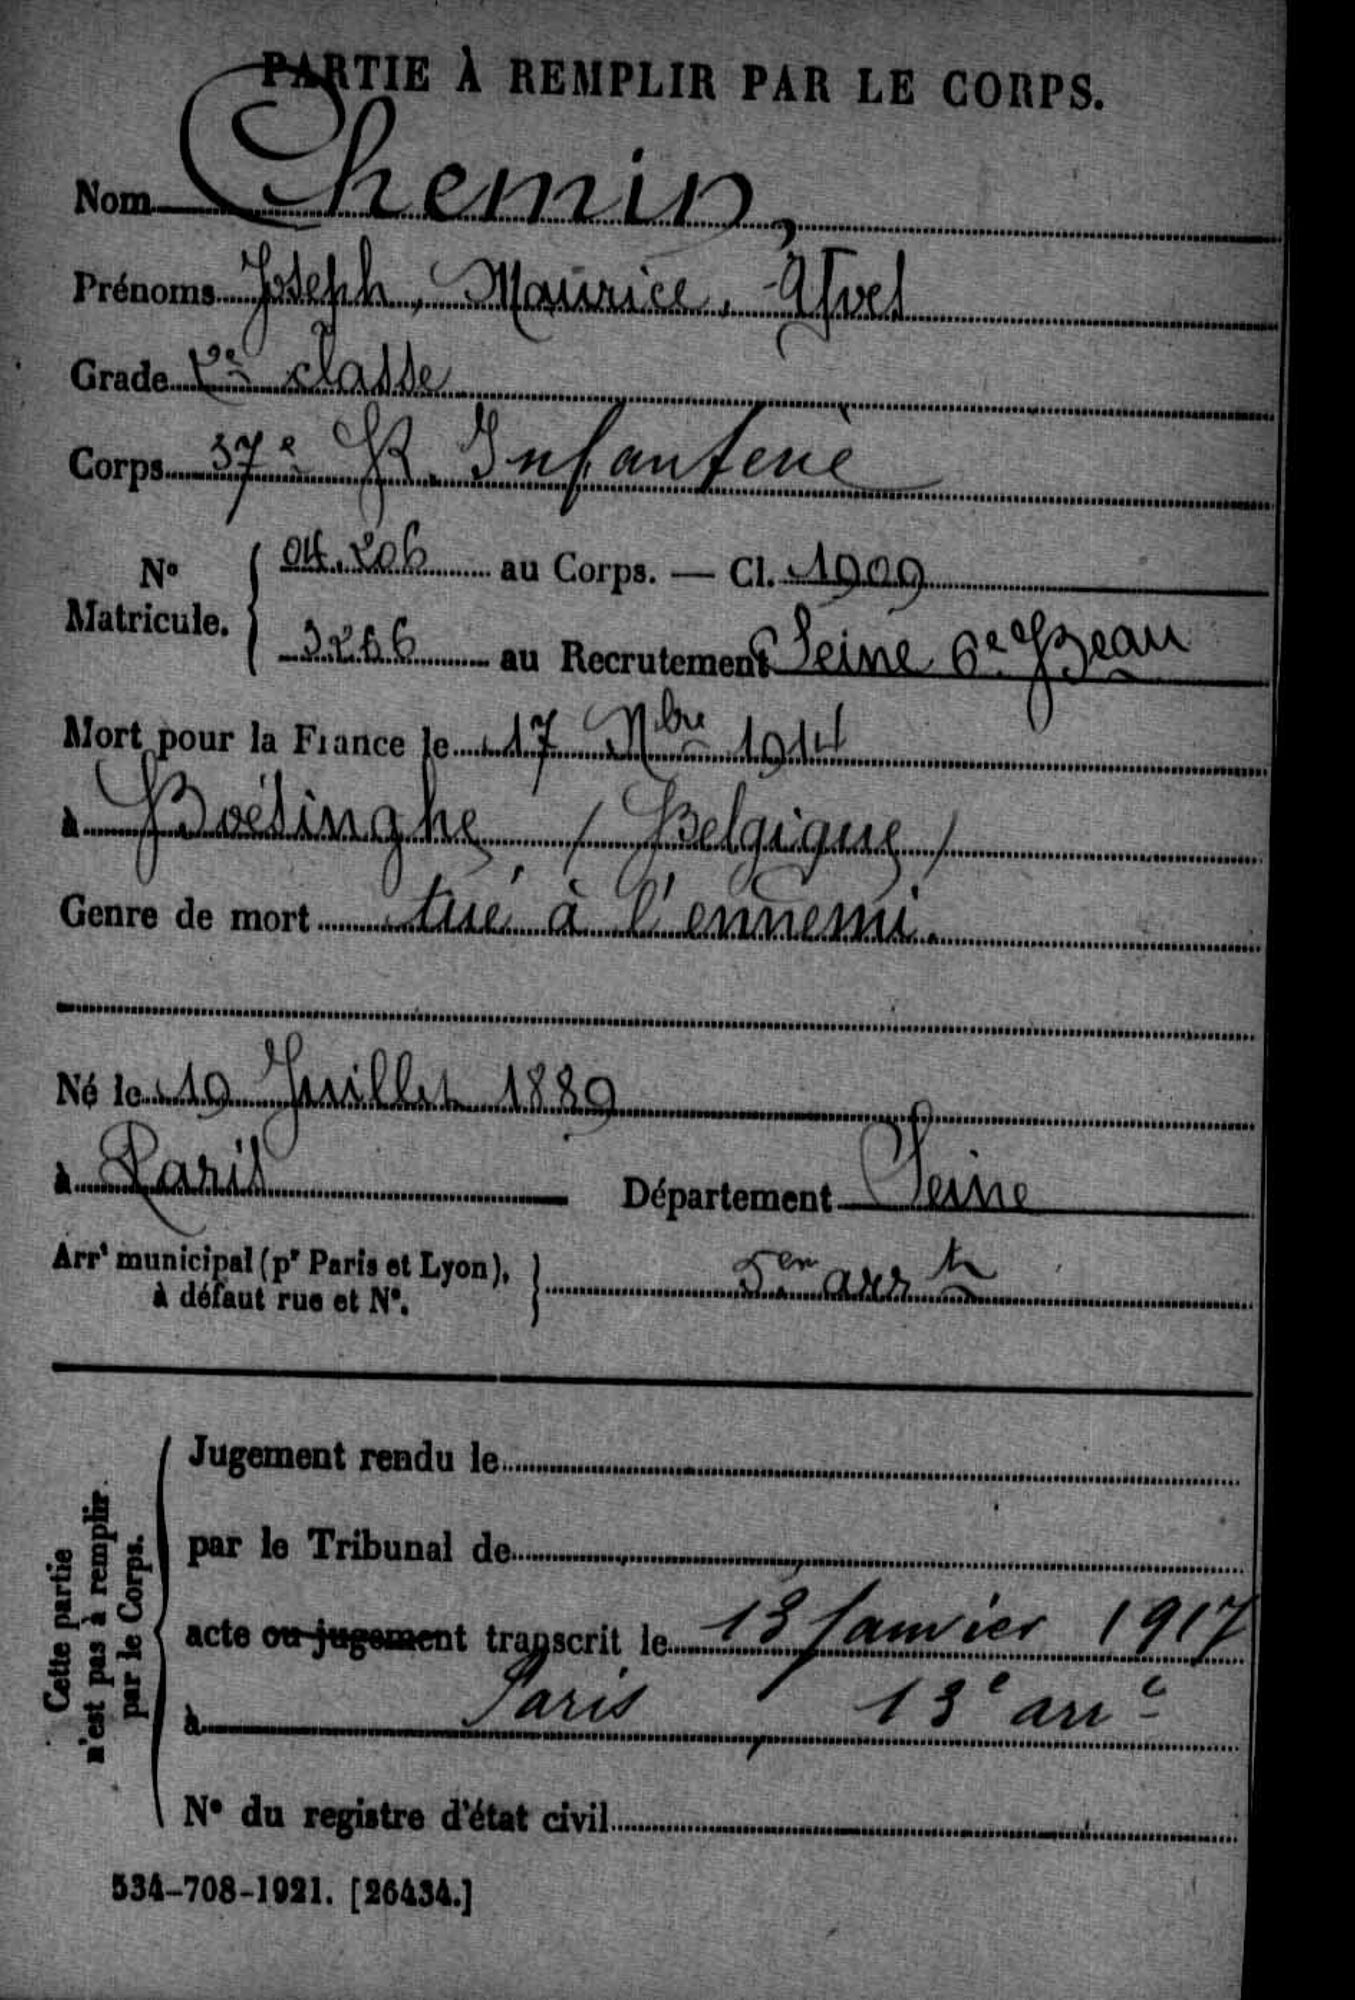 PARTIE À REMPLIR PAR LE CORPS.
Nom Chemin,
Prénoms Joseph, Maurice, Yves
Grade 2e classe
Corps 37e R. Infanterie
No Matricule. { 04.206 au Corps. — Cl. 1909
3266 au Recrutement Seine 6e Beau
Mort pour la France le 17 Nbre 1914
à Boésinghe / Belgique /
Genre de mort tué à l'ennemi.
Né le 19 Juillet 1889
à Paris Département Seine
Arrt municipal (pr Paris et Lyon), à défaut rue et No. } 5em arrt
Cette partie n'est pas à remplir par le Corps.
Jugement rendu le
par le Tribunal de
acte ou jugement transcrit le 13 Janvier 1917
à Paris 13e arre
No du registre d'état civil
534-708-1921. [26434.]